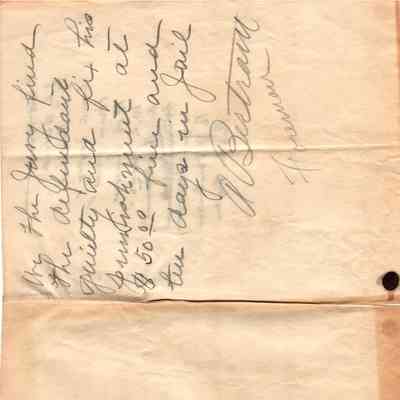 We the Jury find
the defendant
guilty and fix his
punishment at
$50.00 fine and
ten days in jail
Bertram
Foreman